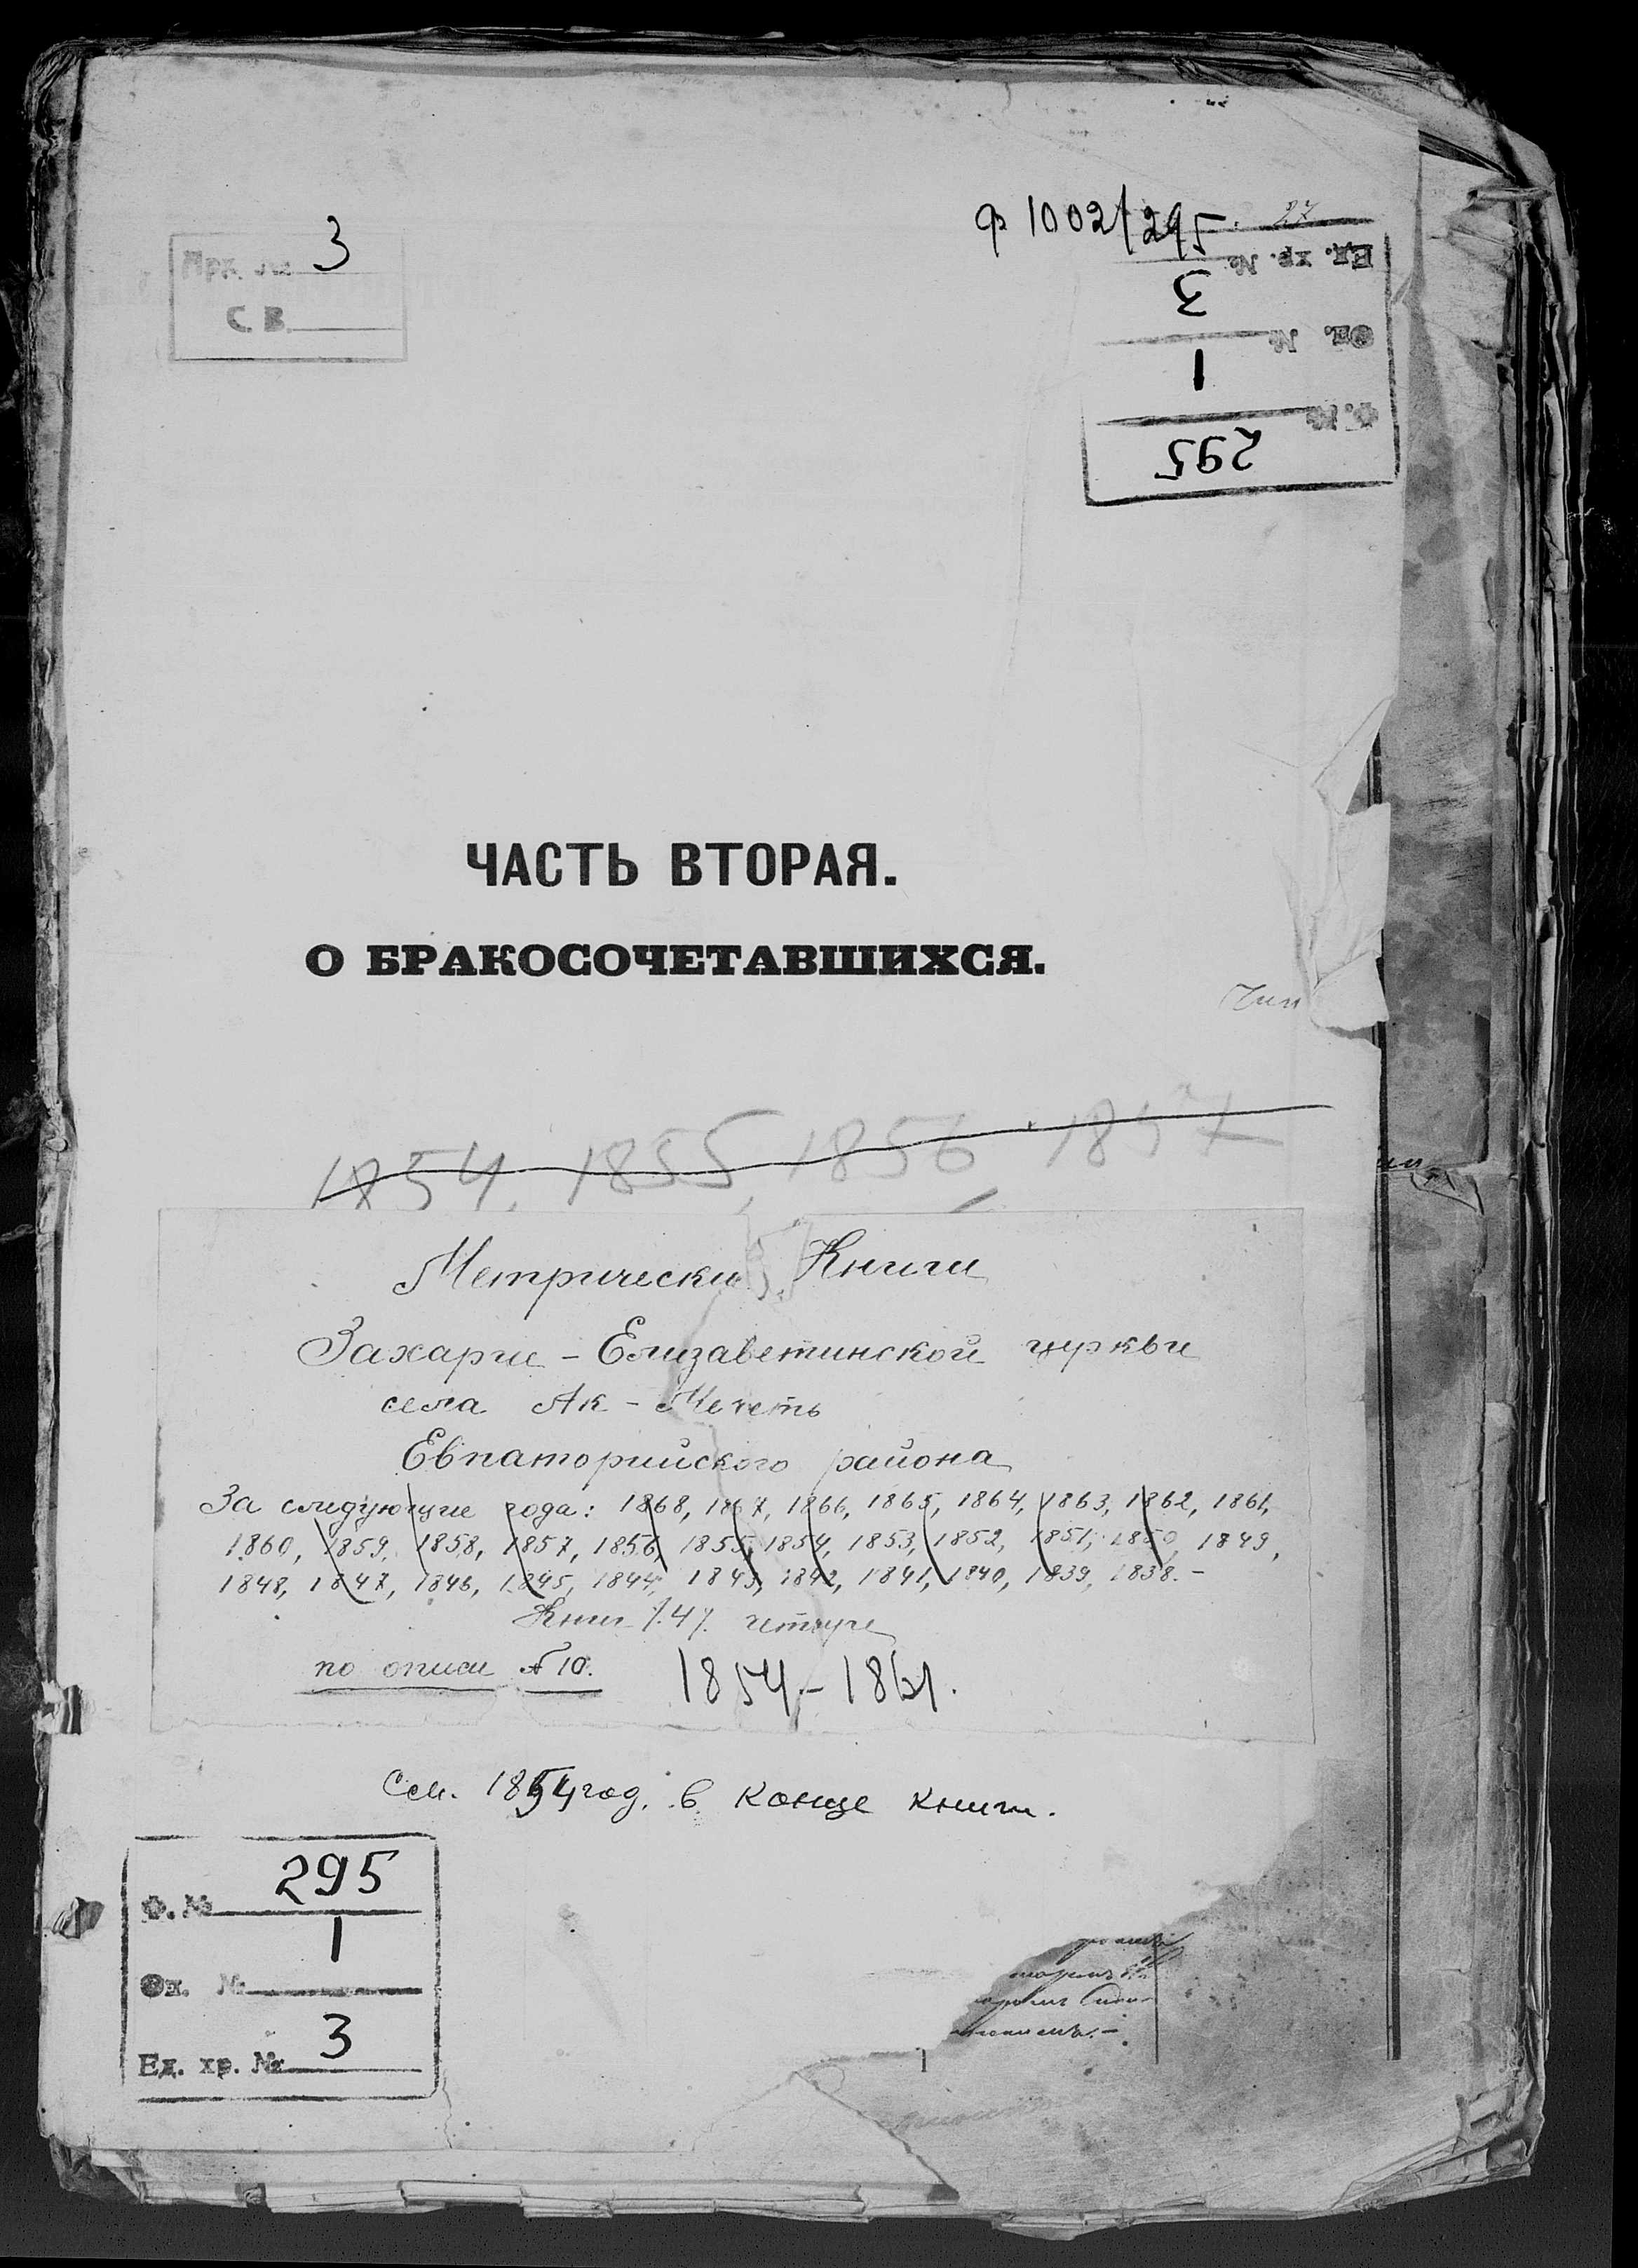 Ярк. № 3
С. В.
Ф 1002/295. 27
Ед. хр. №
3
Оп. №
1
Ф. №
295
ЧАСТЬ ВТОРАЯ.
О БРАКОСОЧЕТАВШИХСЯ.
1854, 1855, 1856, 1857
Метрически Книги
Захарие-Елизаветинской церкви
села Ак-Мечеть
Евпаторийского района
За следующие года: 1868, 1867, 1866, 1865, 1864, 1863, 1862, 1861,
1860, 1859, 1858, 1857, 1856, 1855, 1854, 1853, 1852, 1851, 1850, 1849,
1848, 1847, 1846, 1845, 1844, 1843, 1842, 1841, 1840, 1839, 1838. –
Книг /.4/. четыре
по описи №10. 1854–1861.
См. 1854 год. в конце книги.
Ф. № 295
Оп. № 1
Ед. хр. № 3